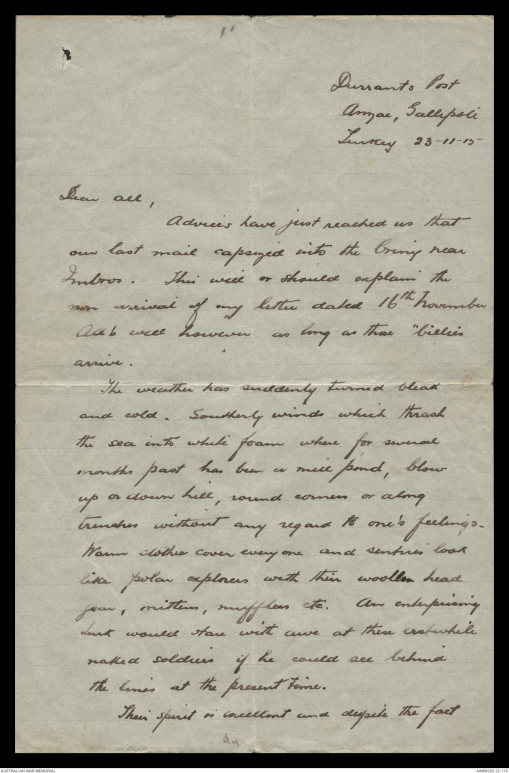 Durrants Post
Anzac, Gallipoli
Turkey 23-11-15
Dear all,
Advices have just reached us that
our last mail capsized into the briny near
Imbros. This will or should explain the
non arrival of my letter dated 16th November
All's well however as long as those "billies"
arrive.
The weather has suddenly turned bleak
and cold. Southerly winds which thrash
the sea into white foam where for several
months past has been a mill pond, blow
up or down hill, round corners or along
trenches without any regard to one's feelings.
Warm clothes cover everyone and sentries look
like polar explorers with their woollen head
gear, mittens, mufflers etc. An enterprising
Turk would stare with awe at these erstwhile
naked soldiers if he could see behind
the lines at the present time.
Their spirit is excellent and despite the fact
AUSTRALIAN WAR MEMORIAL